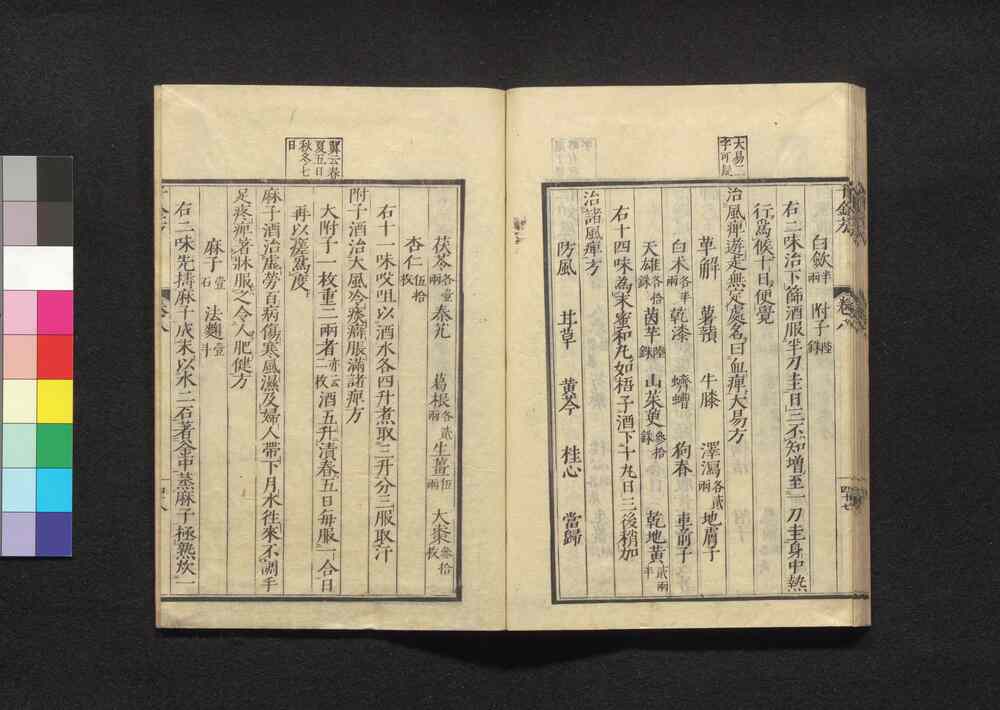 大易二
字可疑
白斂半兩　附子陸銖
右二味治下篩酒服半刀圭日三不知增至一刀圭身中熱
行爲候十日便覺
治風痺遊走無定處名曰血痺大易方
萆解　薯蕷　牛膝　澤瀉各貳兩　地膚子
白术各半兩　乾漆　蠐螬　狗脊　車前子
天雄各拾銖　茵芋陸銖　山茱萸叁拾銖　乾地黃貳兩半
右十四味爲末蜜和丸如梧子酒下十丸日三後稍加
治諸風痺方
防風　甘草　黃芩　桂心　當歸
卷八
四十七
冀云春
夏五日
秋冬七
日
茯苓各壹兩　秦艽　葛根各貳兩　生薑伍兩　大棗叁拾枚
杏仁伍拾枚
右十一味㕮咀以酒水各四升煮取三升分三服取汗
附子酒治大風冷痰癖脹滿諸痺方
大附子一枚重二兩者亦云一枚酒五升漬春五日每服一合日
再以痺爲度
麻子酒治虛勞百病傷寒風濕及婦人帶下月水往來不調手
足疼痺著牀服之令人肥健方
麻子壹石　法麴壹斗
右二味先擣麻子成末以水二石著釜中蒸麻子極熟炊一